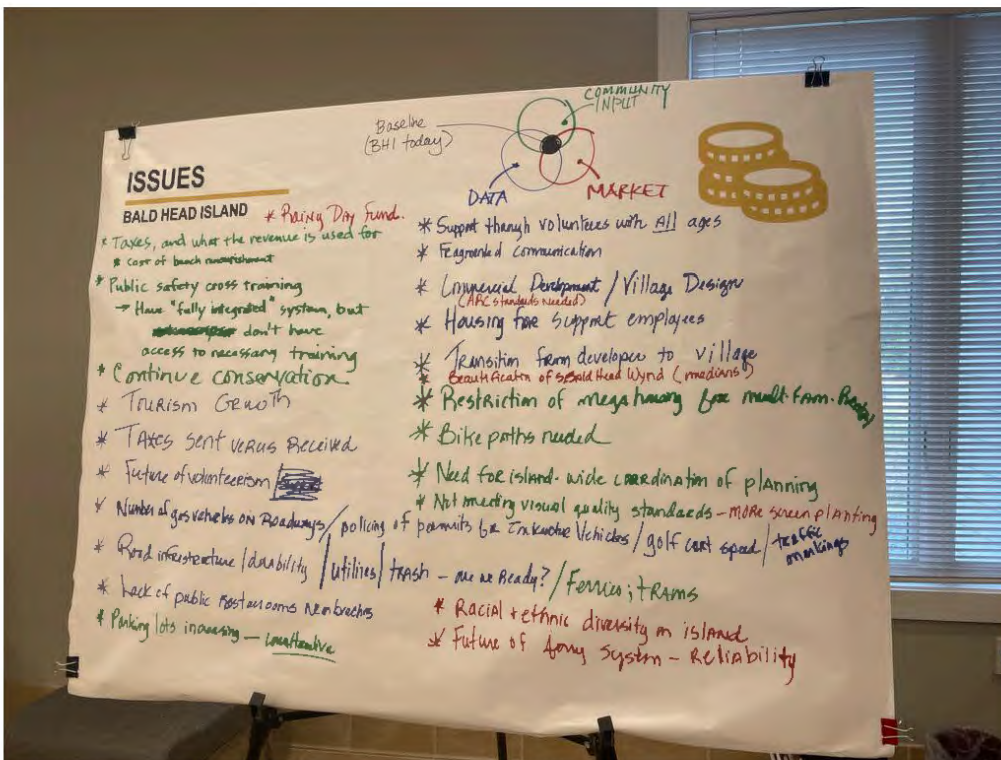 COMMUNITY
INPUT
Baseline
(BHI today)
DATA
MARKET
ISSUES
BALD HEAD ISLAND
* Rainy Day Fund.
* Taxes, and what the revenue is used for
* Cost of beach nourishment
* Public safety cross training
→ Have "fully integrated" system, but
don't have
access to necessary training
* Continue conservation
* Tourism Growth
* Taxes sent versus Received
* Future of volunteerism
* Number of gas vehicles on Roadways / policing of permits for Vehicles / golf cart speed / traffic markings
* Road infrastructure / durability / utilities / TRASH - are we Ready? / Ferries; TRAMS
* Lack of public Restrooms near beaches
* Parking lots increasing -
* Support though volunteers with All ages
* Fragmented communication
* Commercial Development / Village Design
(ARC standards needed)
* Housing for support employees
* Transition from developer to village
* Beautification of Bald Head Wynd (medians)
* Restriction of mega housing for mult-Fam.
* Bike paths needed
* Need for island-wide coordination of planning
* Not meeting visual quality standards - MORE screen planting
* Racial + ethnic diversity on island
* Future of ferry System - Reliability